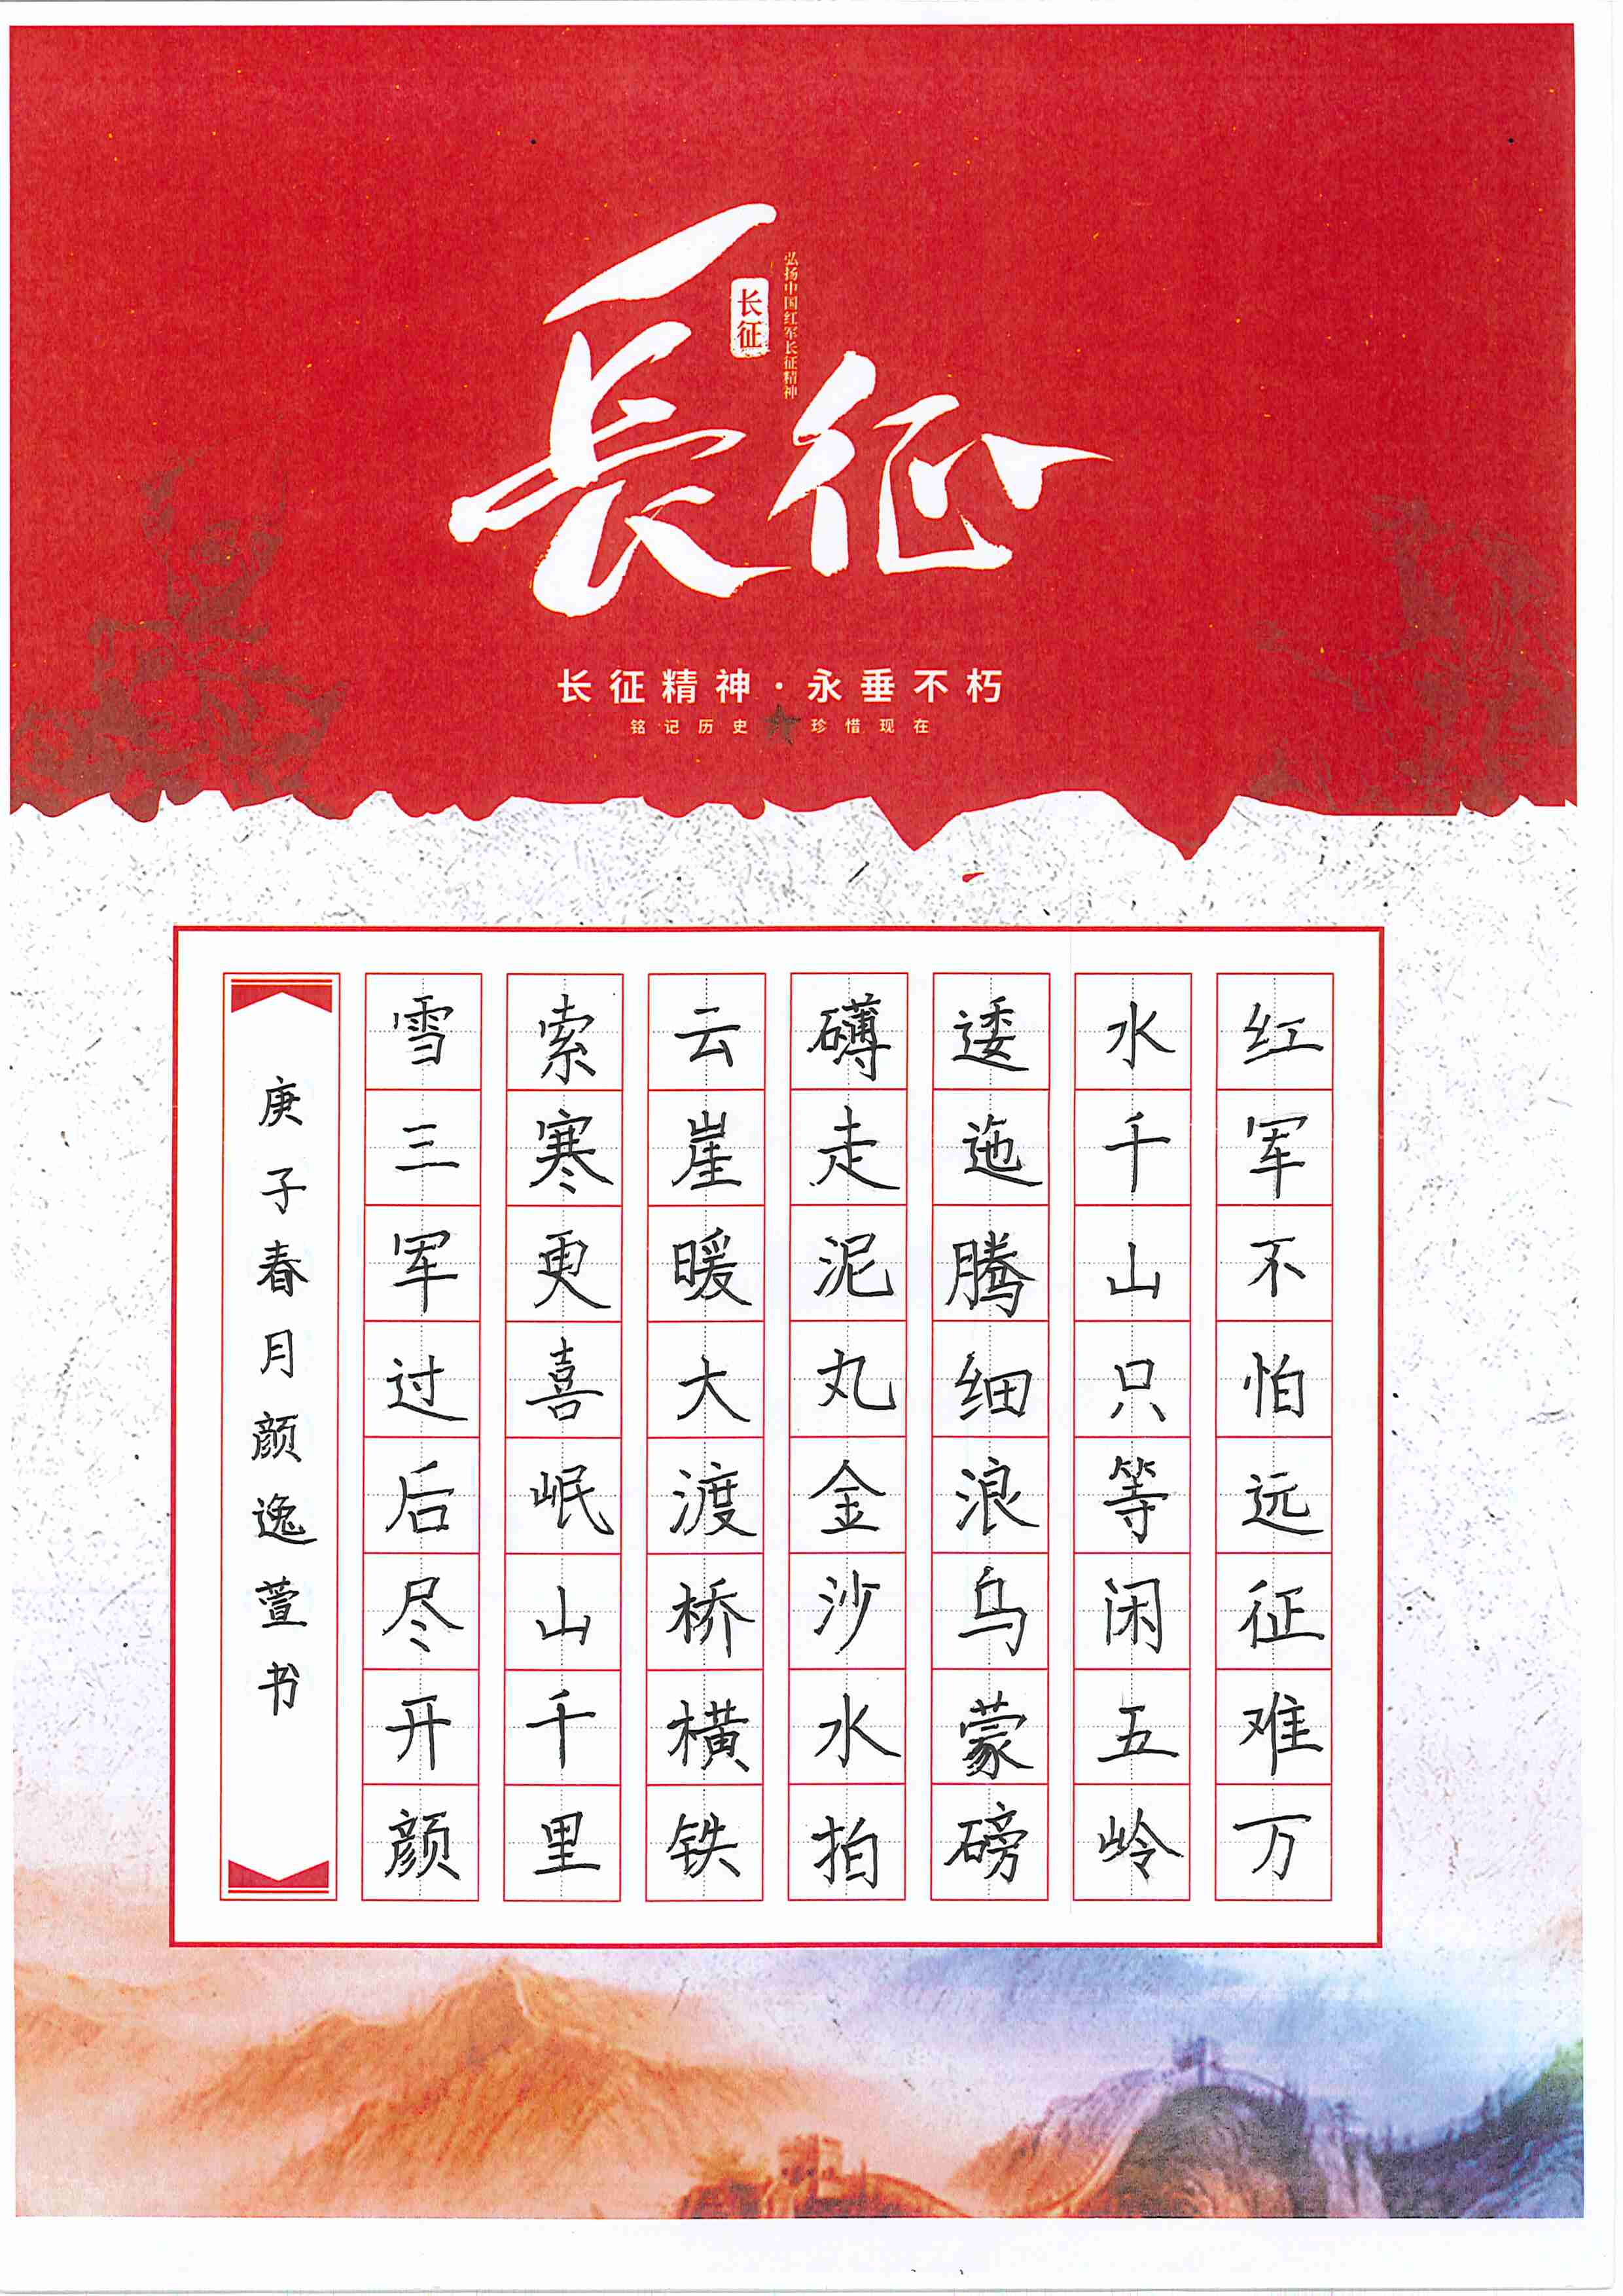 長征
长征
弘扬中国红军长征精神
长征精神·永垂不朽
铭记历史 珍惜现在
红军不怕远征难万
水千山只等闲五岭
逶迤腾细浪乌蒙磅
礴走泥丸金沙水拍
云崖暖大渡桥横铁
索寒更喜岷山千里
雪三军过后尽开颜
庚子春月颜逸萱书